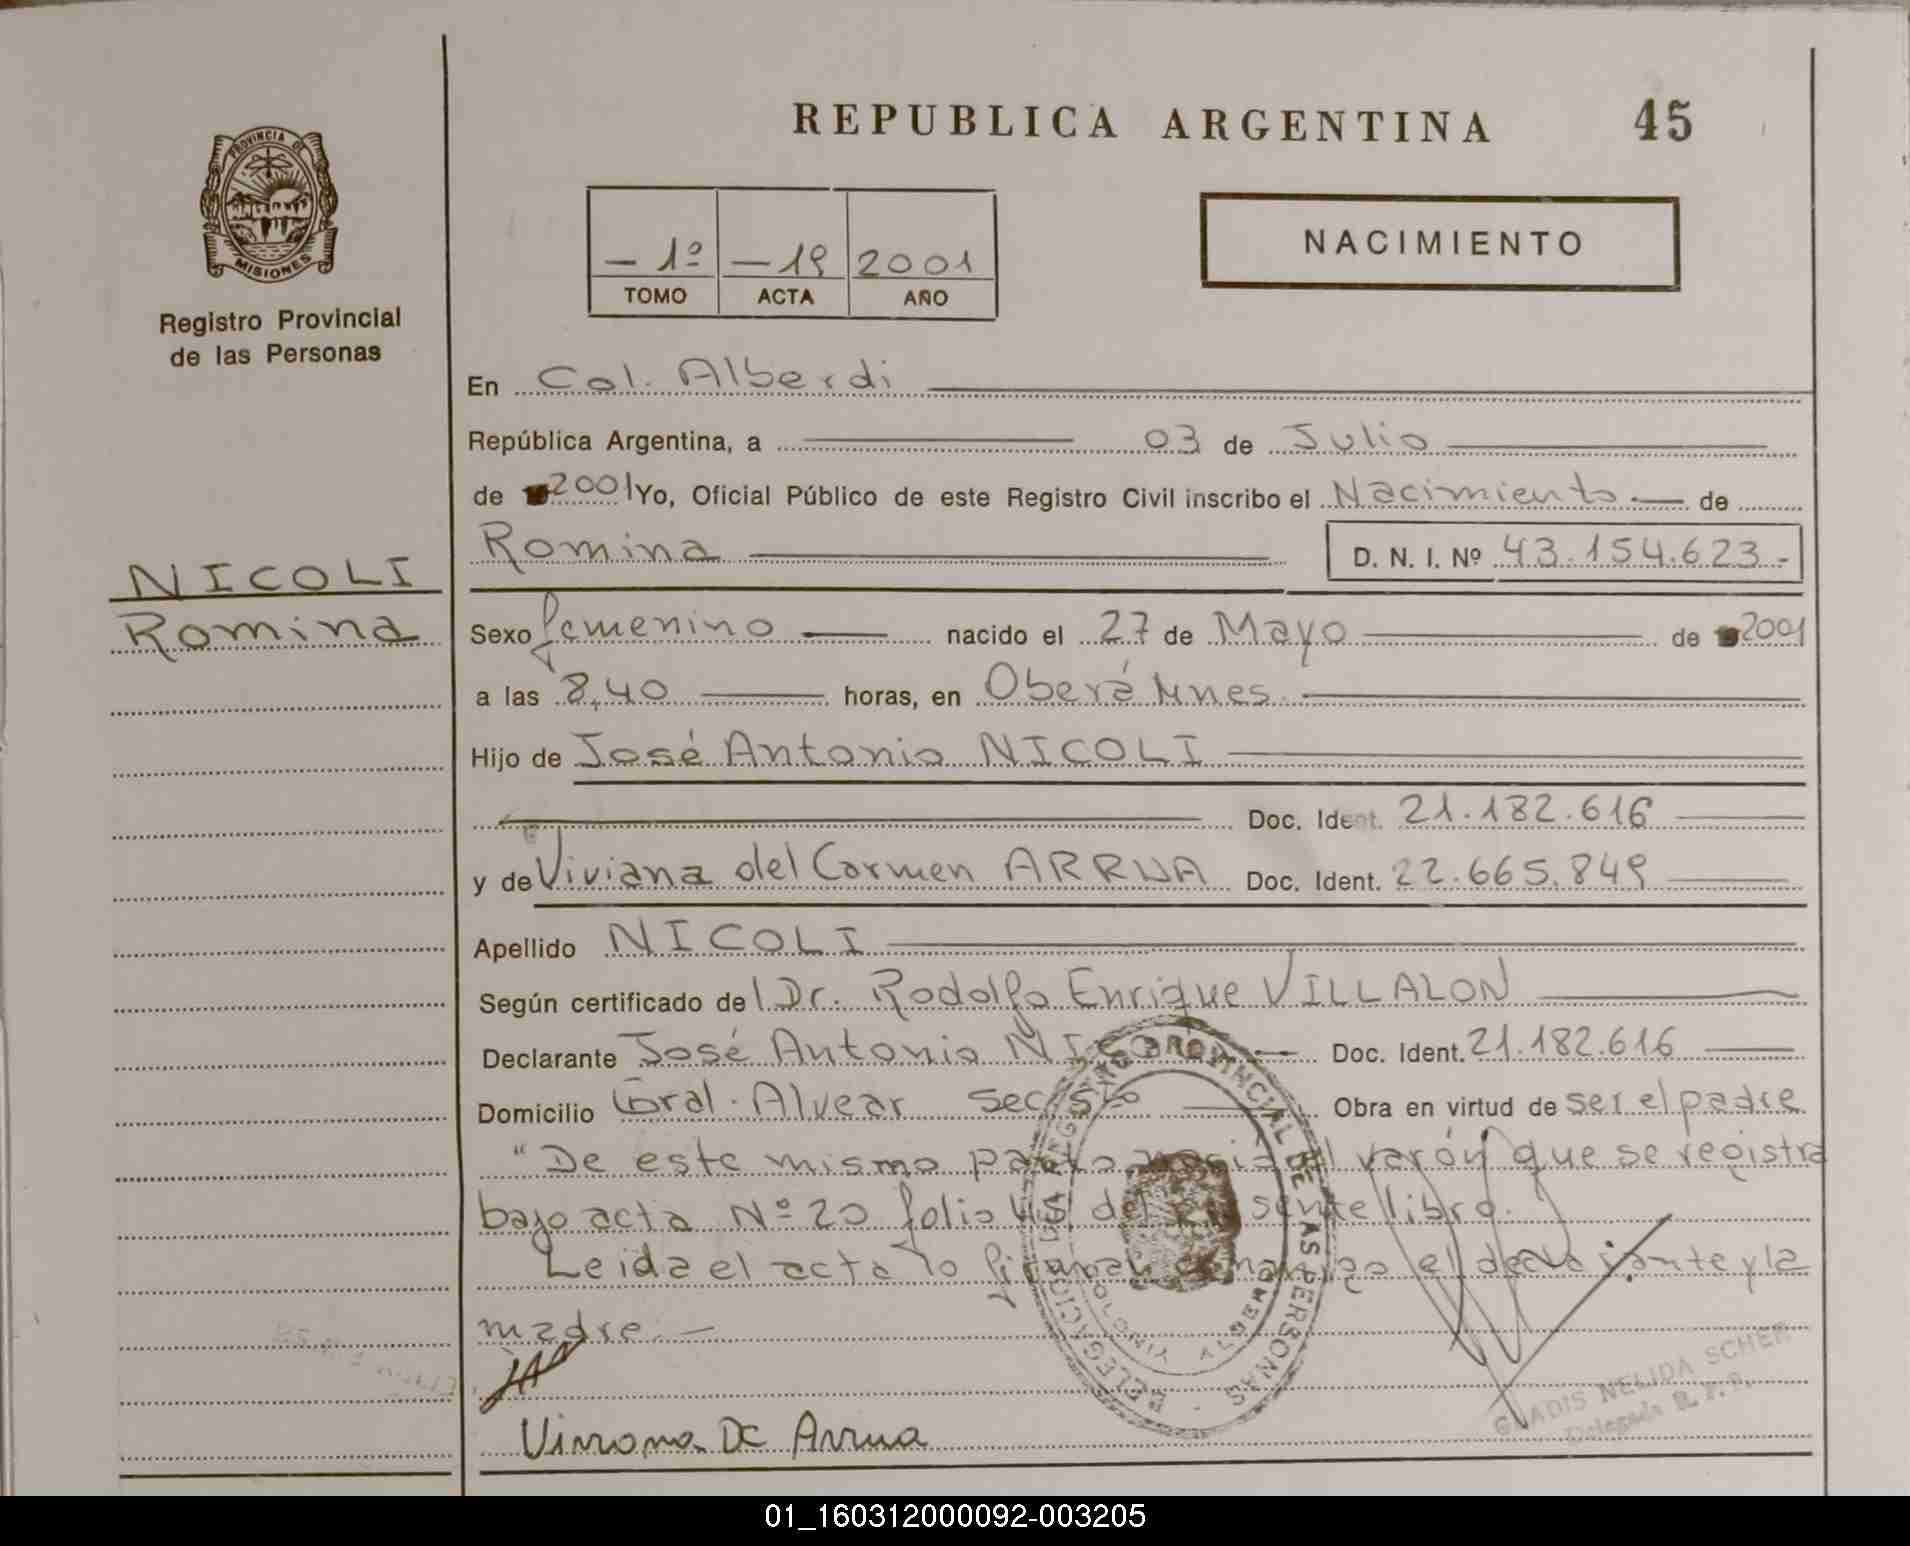 REPUBLICA ARGENTINA 45
PROVINCIA DE
MISIONES
Registro Provincial
de las Personas
- 1º - 19 2001
TOMO ACTA AÑO
NACIMIENTO
En Col. Alberdi
República Argentina, a 03 de Julio
de 2001 Yo, Oficial Público de este Registro Civil inscribo el Nacimiento de
Romina D. N. I. Nº 43.154.623.-
NICOLI
Romina
Sexo femenino nacido el 27 de Mayo de 2001
a las 8,40 horas, en Oberá Mnes.
Hijo de José Antonio NICOLI
Doc. Ident. 21.182.616
y de Viviana del Carmen ARRUA Doc. Ident. 22.665.849
Apellido NICOLI
Según certificado del Dr. Rodolfo Enrique VILLALON
Declarante José Antonio NICOLI Doc. Ident. 21.182.616
Domicilio Gral. Alvear Sec. 5to Obra en virtud de ser el padre
"De este mismo parto nació el varón que se registra
bajo acta Nº 20 folio 45 del presente libro.
Leida el acta lo firman conmigo el declarante y la
madre.-
Viviana DC Arrua
REGISTRO PROVINCIAL DE LAS PERSONAS
DELEGACION
COLONIA ALBERDI
GLADIS NELIDA SCHER
Delegada R. P. P.
01_160312000092-003205